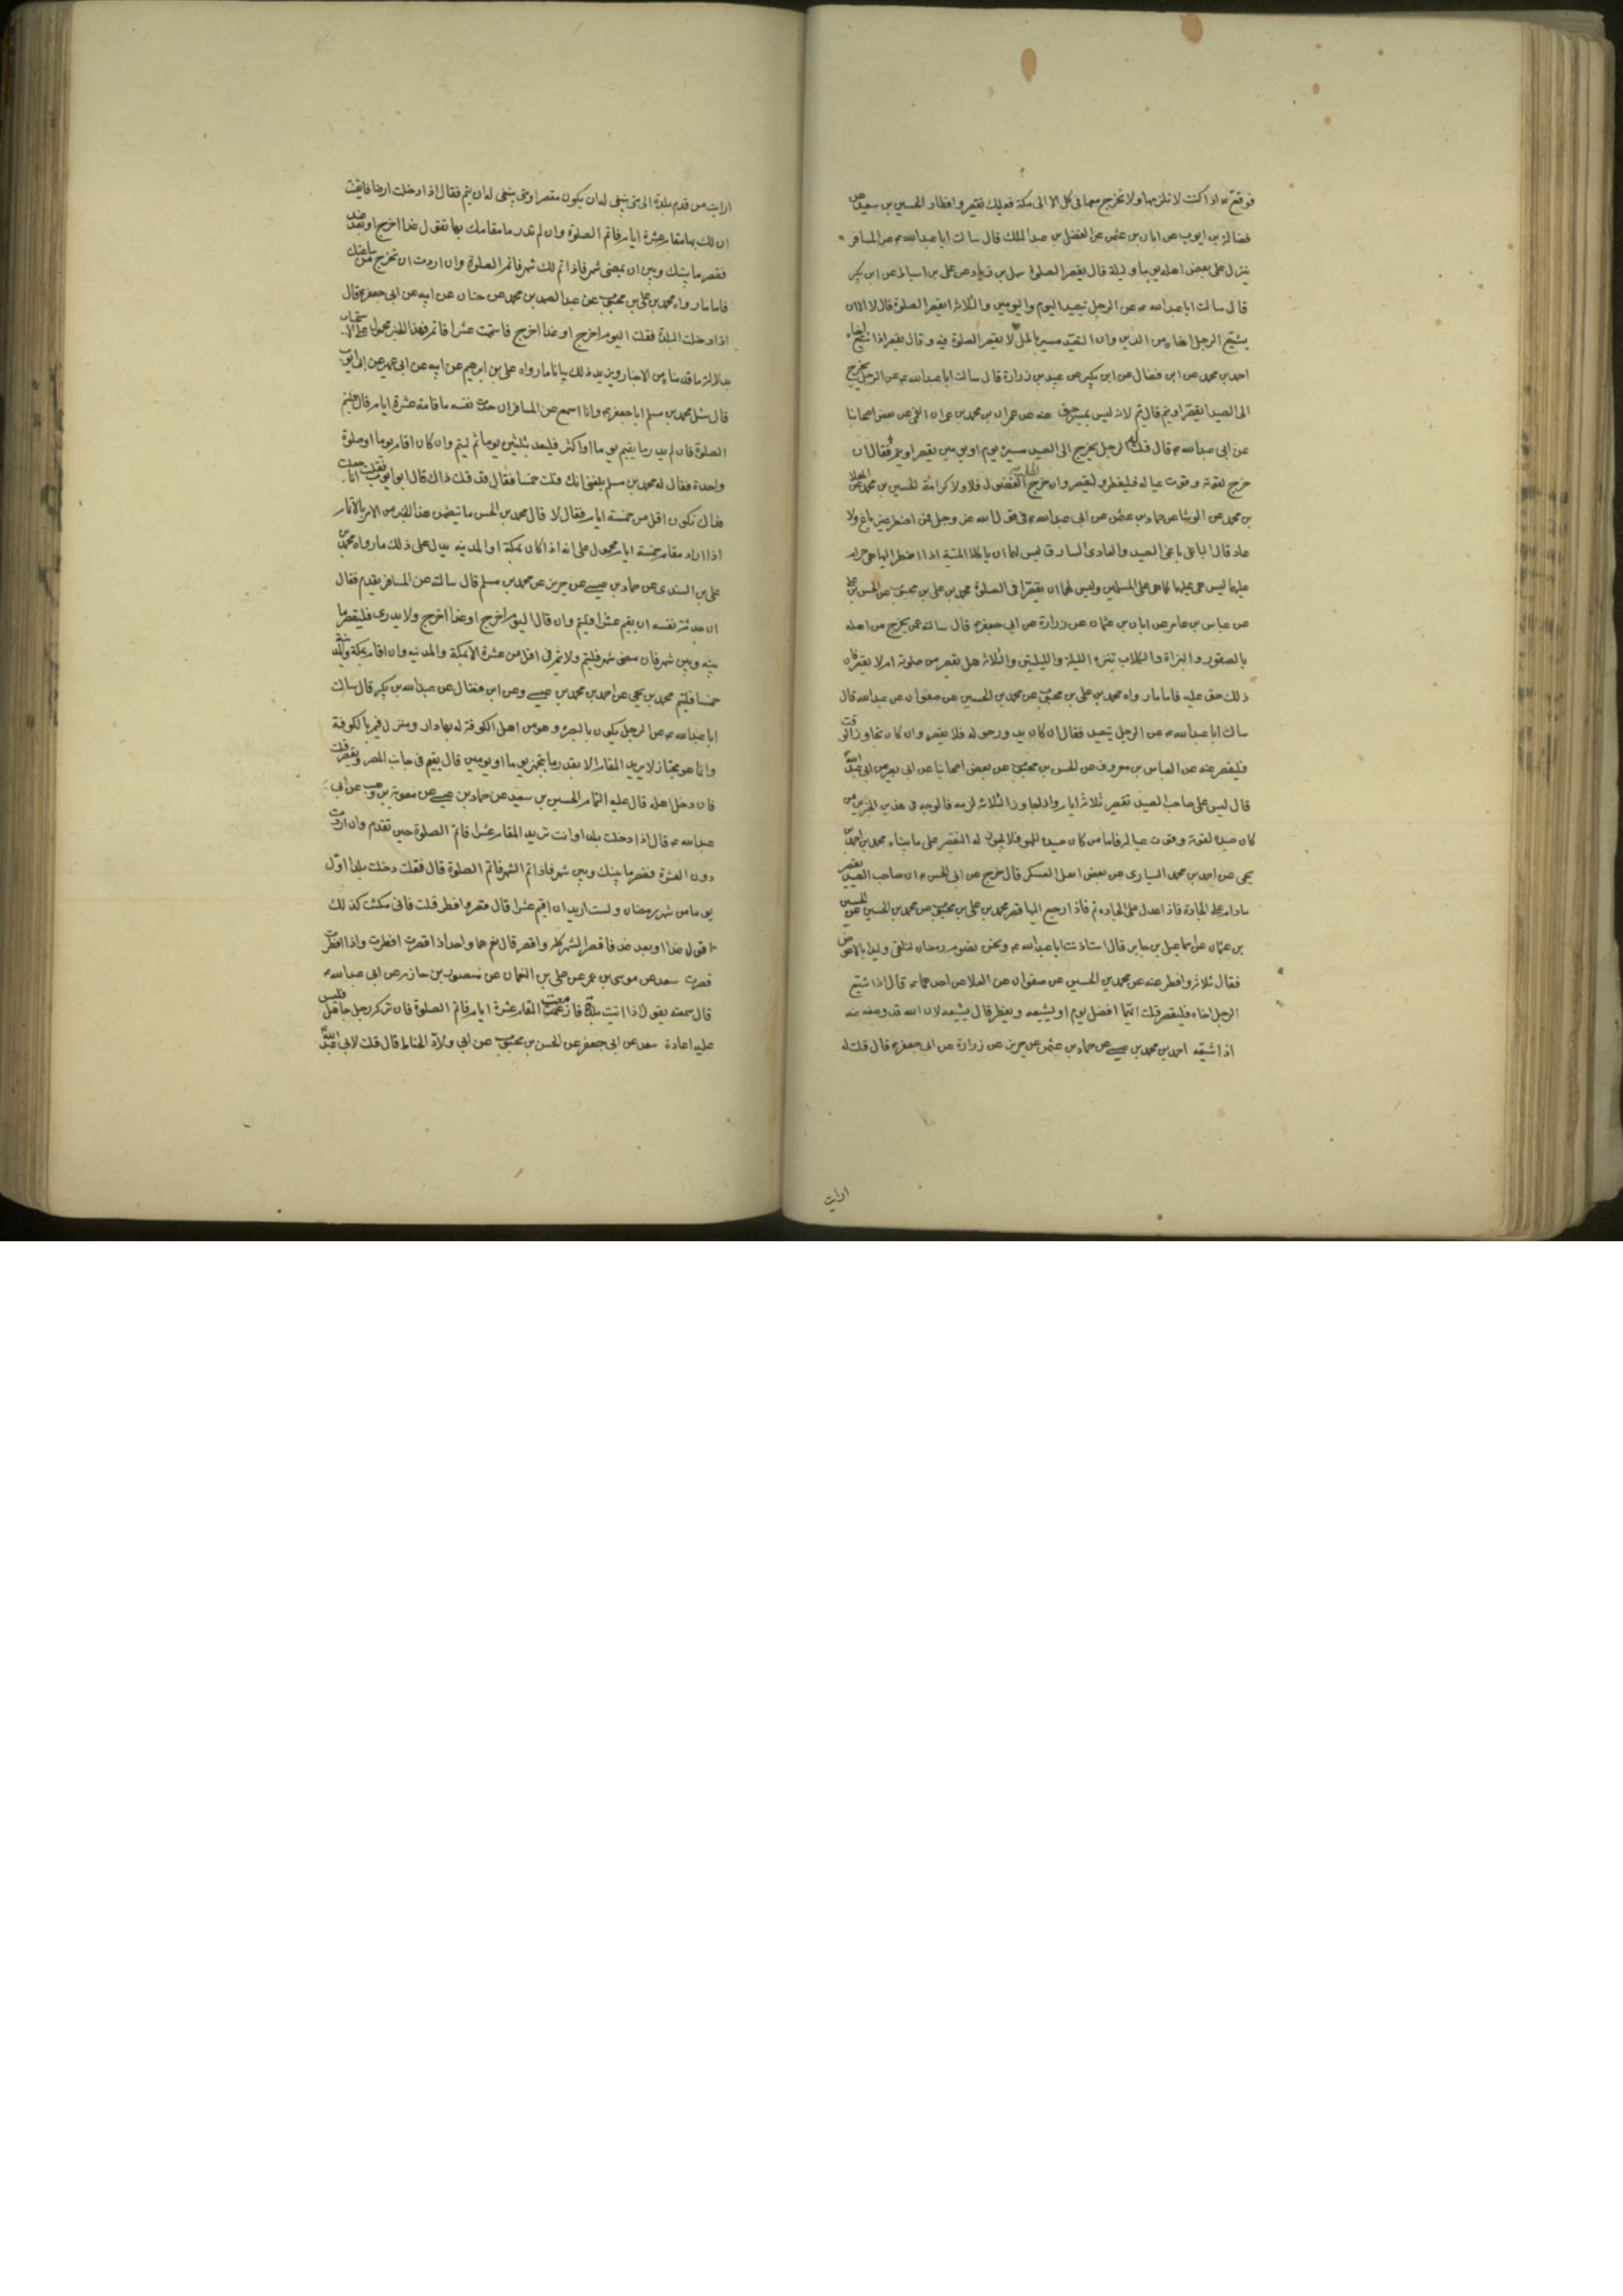 فوقع ع اذا كنت لا تلزمها ولا تخرج معها في كل الا الى مكة فعليك تقصير وافطار الحسين بن سعيد عن
فضالة بن ايوب عن ابان بن عثمن عن الفضل بن عبد الملك قال سالت ابا عبدالله ع عن المسافر
ينزل على بعض اهله يوما وليلة قال يقصر الصلوة سهل بن زياد عن على بن اسباط عن ابن بكير
قال سالت ابا عبد الله ع عن الرجل يتصيد اليوم واليومين والثلاثة ايقصر الصلوة قال لا الا ان
يشيع الرجل اخاه من الدين وان التصيد مسير باطل لا يقصر الصلوة فيه وقال يقصر اذا شيع اخاه
احمد بن محمد عن ابن فضال عن ابن بكير عن عبيد بن زرارة قال سالت ابا عبدالله ع عن الرجل يخرج
الى الصيد ايقصر او يتم قال يتم لانه ليس بمسير حق عنه عن عمران بن محمد بن عمران القمي عن بعض اصحابنا
عن ابى عبدالله ع قال قلت له الرجل يخرج الى الصيد مسيرة يوم او يومين يقصر او يتم فقال ان
خرج لقوته وقوت عياله فليفطر وليقصر وان خرج لطلب الفضول فلا ولا كرامة الحسين بن محمد عن معلا
بن محمد عن الوشا عن حماد بن عثمن عن ابى عبدالله ع فى قول الله عز وجل فمن اضطر غير باغ ولا
عاد قال الباغى باغى الصيد والعادى السارق ليس لهما ان ياكلا الميتة اذا اضطرا اليها هى حرام
عليهما ليس هى عليهما كما هى على المسلمين وليس لهما ان يقصرا فى الصلوة محمد بن على بن محبوب عن الحسن بن على
عن عباس بن عامر عن ابان بن عثمان عن زرارة عن ابى جعفر ع قال سالته عمن يخرج من اهله
بالصقور والبزاة والكلاب تتنزه الليلة والليلتين والثلاثة هل يقصر من صلوته ام لا يقصر فان
ذلك حق عليه فاما ما رواه محمد بن على بن محبوب عن محمد بن الحسين عن صفوان عن عبدالله قال
سالت ابا عبدالله ع عن الرجل يتصيد فقال ان كان يدور حوله فلا يقصر وان كان تجاوز الوقت
فليقصر عنه عن العباس بن معروف عن الحسن بن محبوب عن بعض اصحابنا عن ابى بصير عن ابى عبدالله
قال ليس على صاحب الصيد تقصير ثلاثة ايام واذا جاوز الثلاثة لزمه فالوجه فى هذين الخبرين من
كان صيده لقوته وقوت عياله فاما من كان صيده للهو فلا يجوز له التقصير على ما بيناه محمد بن احمد بن
يحى عن احمد بن محمد السيارى عن بعض اهل العسكر قال خرج عن ابى الحسن ع ان صاحب الصيد يقصر
مادام على الجادة فاذا عدل على الجاده تم فاذا رجع اليها قصر محمد بن على بن محبوب عن محمد بن الحسين عن الحسين
بن عثمان عن اسماعيل بن جابر قال استاذنت ابا عبدالله ع ونحن نصوم رمضان لنلقى وليدا بالاعوض
فقال تلقه وافطر عنه عن محمد بن الحسين عن صفوان عن العلا عن احدهما ع قال اذا شيع
الرجل اخاه فليقصر قلت ايهما افضل يصوم او يشيعه ويفطر قال يشيعه لان الله قد وضعه عنه
اذا شيعه احمد بن محمد بن عيسى عن حماد بن عثمن عن حريز عن زرارة عن ابى جعفر ع قال قلت له
ارايت
ارايت من قدم بلدة الى متى ينبغى له ان يكون مقصرا ومتى ينبغى له ان يتم فقال اذا دخلت ارضا فايقنت
ان لك بها مقام عشرة ايام فاتم الصلوة وان لم تدر ما مقامك بها تقول غدا اخرج او بعد غد
فقصر ما بينك وبين ان يمضى شهر فاذا تم لك شهر فاتم الصلوة وان اردت ان تخرج من ساعتك
فاما ما رواه محمد بن على بن محبوب عن عبد الصمد بن محمد عن حنان عن ابيه عن ابى جعفر ع قال
اذا دخلت البلدة فقلت اليوم اخرج او غدا اخرج فاستتمت عشرا فاتم فهذا الخبر محمول على الاستحباب
بدلالة ما قدمناه من الاخبار ويزيد ذلك بيانا ما رواه على بن ابرهيم عن ابيه عن ابى عمير عن ابى ايوب
قال سئل محمد بن مسلم ابا جعفر ع وانا اسمع عن المسافر ان حدث نفسه باقامة عشرة ايام قال فليتم
الصلوة فان لم يدر ما يقيم يوما او اكثر فليعد ثلثين يوما ثم ليتم وان كان اقام يوما او صلوة
واحدة فقال له محمد بن مسلم بلغنى انك قلت خمسا فقال قد قلت ذاك قال ابو ايوب فقلت جعلت انا
فداك تكون اقل من خمسة ايام فقال لا قال محمد بن الحسن ما تضمن هذا الخبر من الامر بالاتمام
اذا اراد مقام خمسة ايام محمول على انه اذا كان بمكة او المدينه يدل على ذلك ما رواه محمد بن
على بن السندى عن حماد بن عيسى عن حريز عن محمد بن مسلم قال سالته عن المسافر يقدم فقال
ان حدثته نفسه ان يقيم عشرا فليتم وان قال اليوم اخرج او غدا اخرج ولا يدرى فليقصر ما
بينه وبين شهر فان مضى شهر فليتم ولا يتم فى اقل من عشرة الا بمكة والمدينه وان اقام بمكة والمدينة
خمسا فليتم محمد بن يحيى عن احمد بن محمد بن عيسى وعن ابن فضال عن عبدالله بن بكير قال سالت
ابا عبدالله ع عن الرجل يكون بالبصرة وهو من اهل الكوفة له بها دار ومنزل فيمر بالكوفة
وانما هو مجتاز لا يريد المقام الا بقدر ما يتجهز يوما او يومين قال يقيم فى جانب المصر ويقصر قلت
فان دخل اهله قال عليه التمام الحسين بن سعيد عن حماد بن عيسى عن معوية بن وهب عن ابى
عبدالله ع قال اذا دخلت بلدا وانت تريد المقام عشرا فاتم الصلوة حين تقدم وان اردت
دون العشرة فقصر ما بينك وبين شهر فاذا تم الشهر فاتم الصلوة قال قلت دخلت بلدا اول
يوم من شهر رمضان ولست اريد ان اقيم عشرا قال قصر وافطر قلت فانى مكثت كذلك
اقول غدا او بعد غد فاقصر الشهر كله وافطر قال نعم هما واحد اذا قصرت افطرت واذا افطرت
قصرت سعد عن موسى بن عمر عن على بن النعمان عن منصور بن حازم عن ابى عبدالله ع
قال سمعته يقول اذا اتيت بلدة فازمعت المقام عشرة ايام فاتم الصلوة فان تركه رجل جاهل فليس
عليه اعادة سعد عن ابى جعفر عن الحسن بن محبوب عن ابى ولاد الحناط قال قلت لابى عبدالله